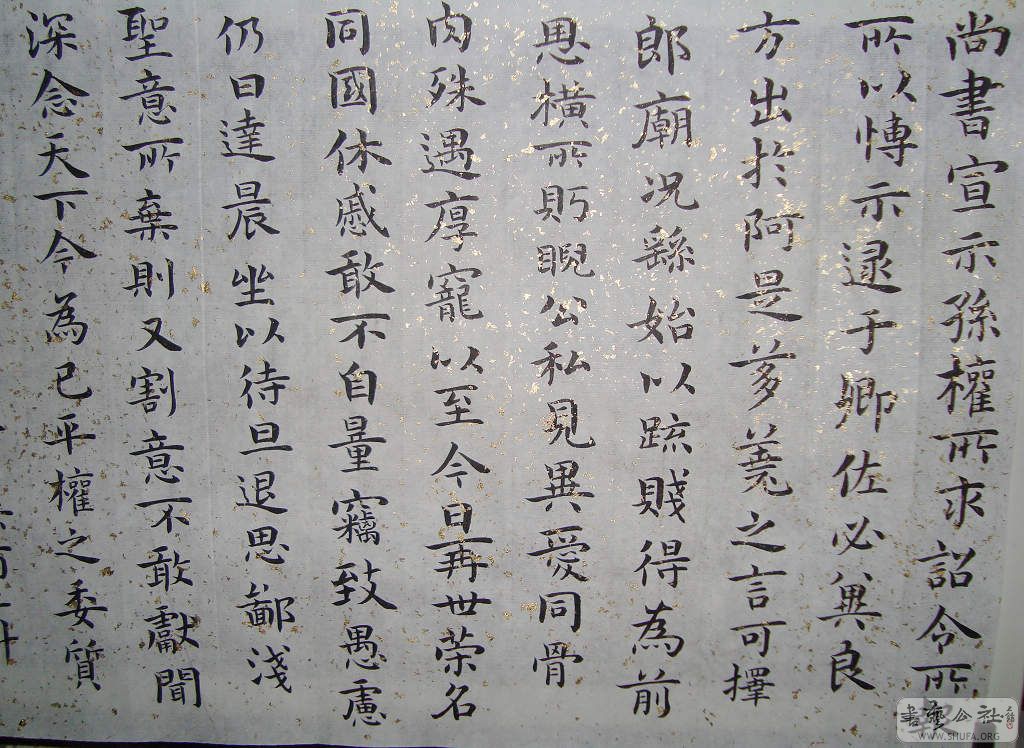 尚書宣示孫權所求詔令所
所以愽示逮于卿佐必異良
方出於阿是芻蕘之言可擇
郎廟況繇始以疏賤得為前
恩橫所眄睨公私見異愛同骨
肉殊遇厚寵以至今日再世荣名
同國休戚敢不自量竊致愚慮
仍日達晨坐以待旦退思鄙淺
聖意所棄則又割意不敢獻聞
深念天下今為已平權之委質
書藝公社
WWW.SHUFA.ORG